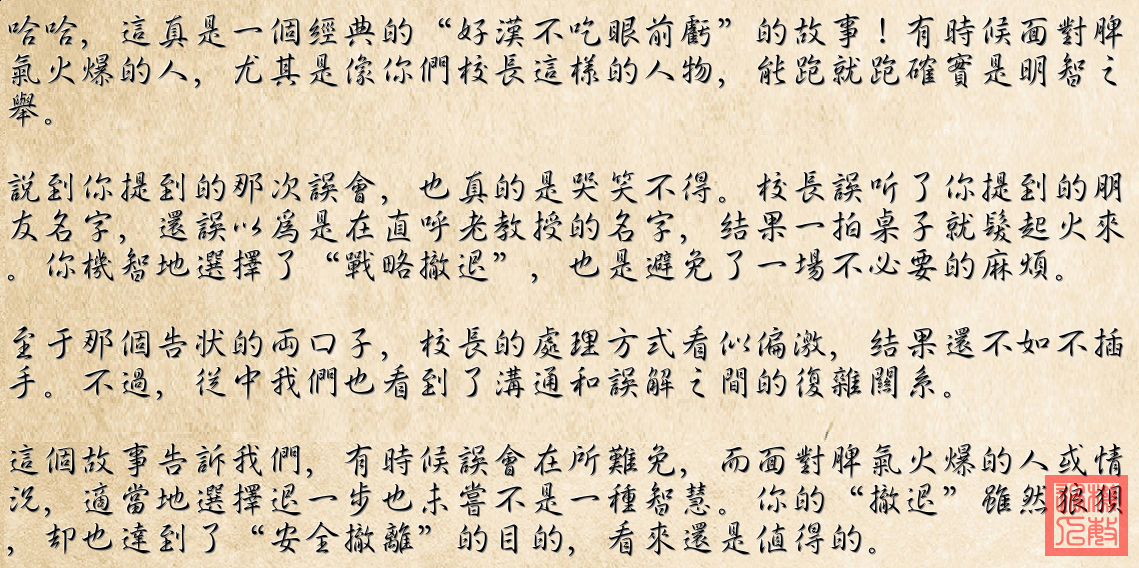 哈哈，這真是一個經典的“好漢不吃眼前虧”的故事！有時候面對脾
氣火爆的人，尤其是像你們校長這樣的人物，能跑就跑確實是明智之
舉。
說到你提到的那次誤會，也真的是哭笑不得。校長誤听了你提到的朋
友名字，還誤以爲是在直呼老教授的名字，結果一拍桌子就髮起火來
。你機智地選擇了“戰略撤退”，也是避免了一場不必要的麻煩。
至于那個告状的両口子，校長的處理方式看似偏激，結果還不如不插
手。不過，從中我們也看到了溝通和誤解之間的復雜關系。
這個故事告訴我們，有時候誤會在所難免，而面對脾氣火爆的人或情
況，適當地選擇退一步也未嘗不是一種智慧。你的“撤退”雖然狼狽
，却也達到了“安全撤離”的目的，看來還是值得的。